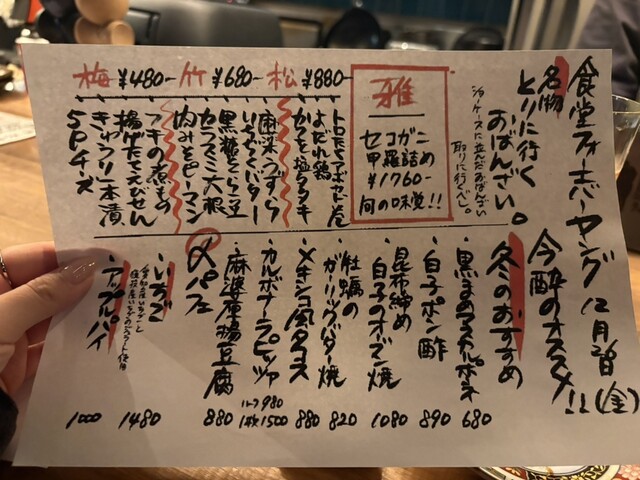 食堂フォーエバーヤング 12月26日(金)
今酔のオススメ!!
名物
とりに行く
おばんざい。
取りに行くべし。
雅
セコガニ
甲羅詰め
¥1760-
旬の味覚!!
松 ¥880-
トロたくアボカド巻
よだれ鶏
かつを塩タタキ
竹 ¥680-
麻薬うずら
いちじくバター
黒糖くらま豆
セラミ大根
肉みそピーマン
梅 ¥480-
アキの煮もの
揚げたてえびせん
きゅうり一本漬
5Pチーズ
冬のおすすめ
・黒まぐろカルパッチョ 680
・白子ポン酢 890
・昆布締め白子のオーブン焼 1080
・牡蠣のガーリックバター焼 820
・メキシコ風タコス 880
・カルボナーラピッツァ ハーフ980 1枚1500
・麻婆厚揚豆腐 880
〆パフェ
・いちご 1480
・アップルパイ 1000